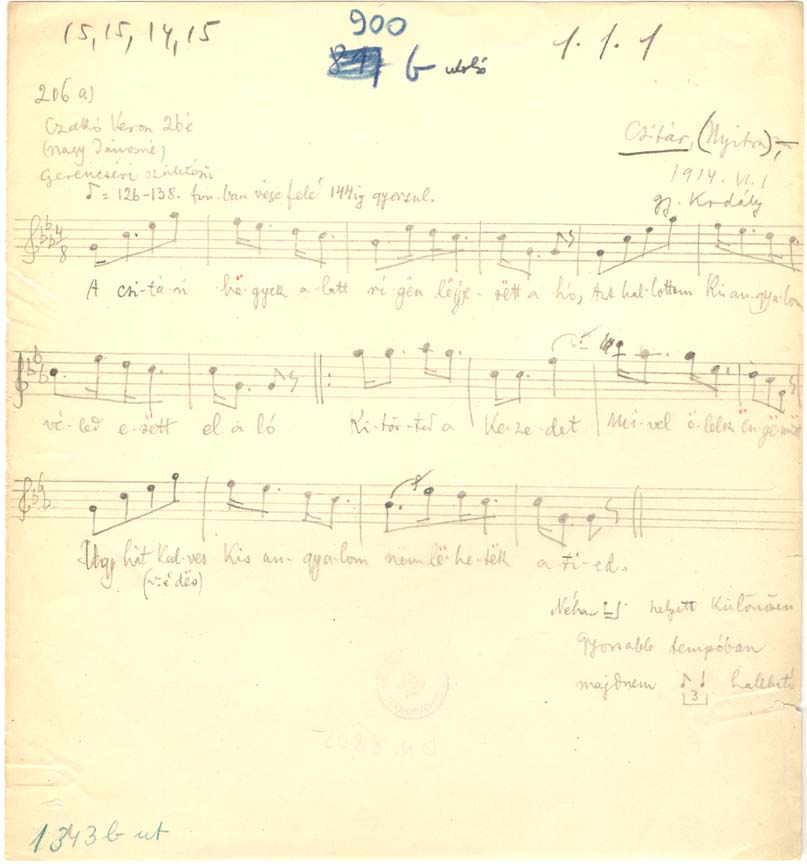 15, 15, 14, 15
900
1. 1. 1
6 utolsó
206 a)
Czakó Veron 26é
(Nagy Jánosné)
Gerencséri születésű
Csitár, (Nyitra)
1914. VI. 1
gj. Kodály
♪ = 126-138. fon.ban vége felé 144ig gyorsul.
4
8
A csi-tá-ri hë-gyek a-latt ré-gën lë-
sëtt a hó, Azt hal-lottam Kis an-gya-lom
vé-led e-sëtt el a ló Ki-tör-ted a Ke-ze-det Mi-vel ö-lelsz ën-gë-mët
Úgy hát Ked-ves Kis an-gya-lom nëm lë-he-tëk a ti-ed.
Néha helyett Különösen
Gyorsabb tempóban
majdnem 3 hallható
1343 b ut